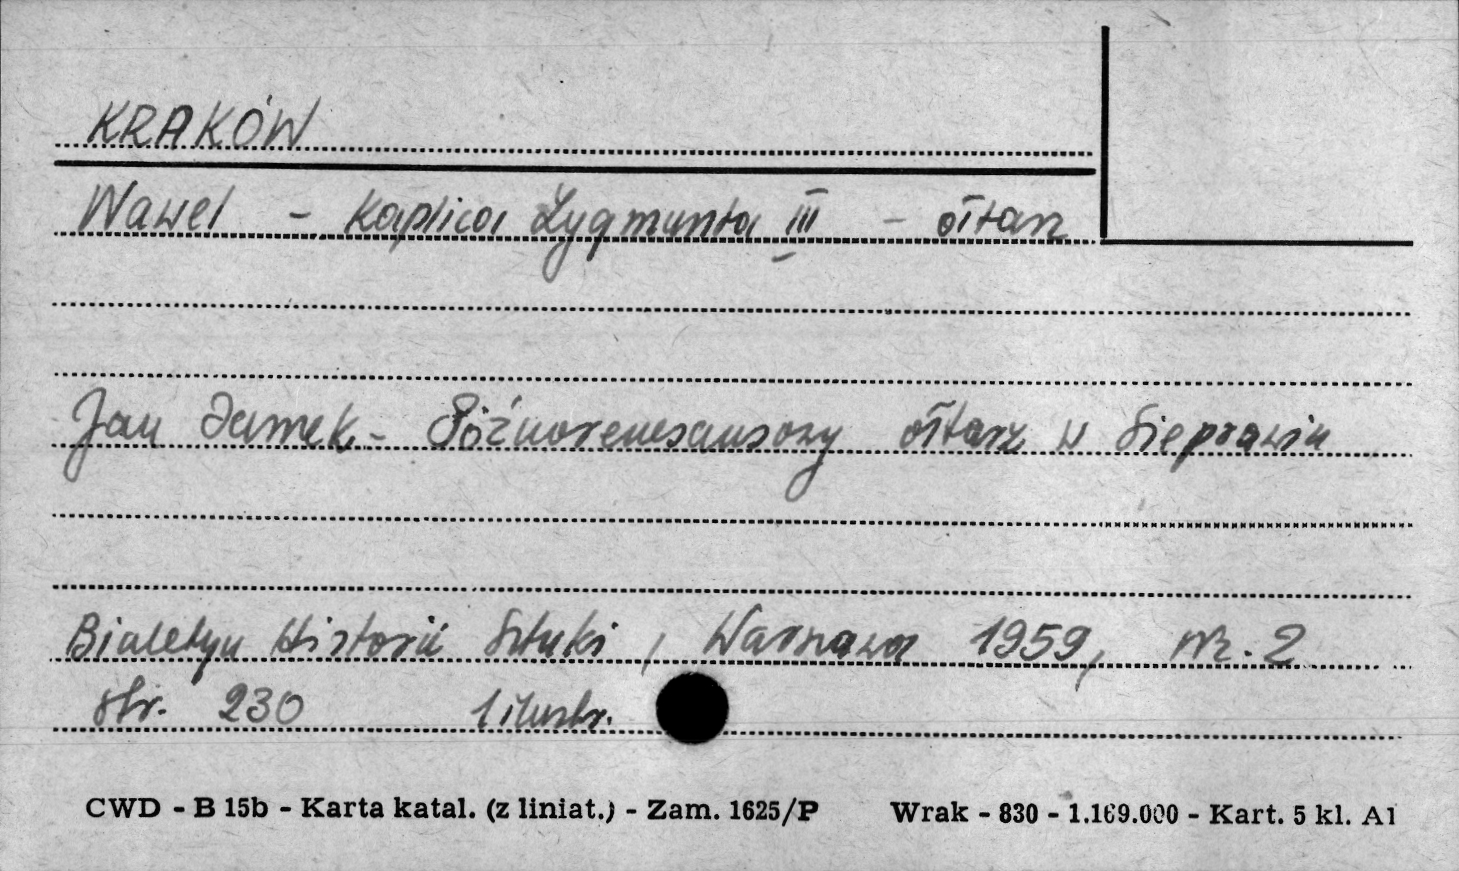 KRAKÓW
Wawel - Kaplica Zygmunta III - ołtarz
Jan Samek - Późnorenesansowy ołtarz w Sieprawiu
Biuletyn Historii Sztuki, Warszawa 1959, Nr. 2
str. 230 1 ilustr.
CWD - B 15b - Karta katal. (z liniat.) - Zam. 1625/P Wrak - 830 - 1.169.000 - Kart. 5 kl. A1